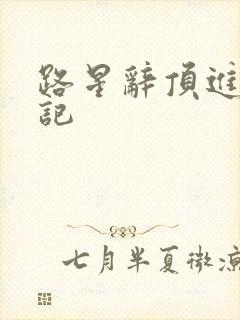 路星辭頂進
記
七月半夏微涼